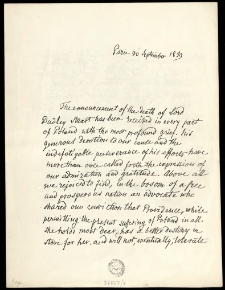 Paris 30 September 1859
The announcement of the death of Lord
Dudley Stuart has been received in every part
of Poland with the most profound grief. His
generous devotion to our cause and the
indefatigable perseverance of his efforts have
more than once called forth the expression of
our admiration and gratitude. Above all
we rejoiced to find, in the bosom of a free
and prosperous nation an advocate who
shared our conviction that Providence, while
permitting the present suffering of Poland in all
she holds most dear, has a better destiny in
store for her, and will not eventually tolerate